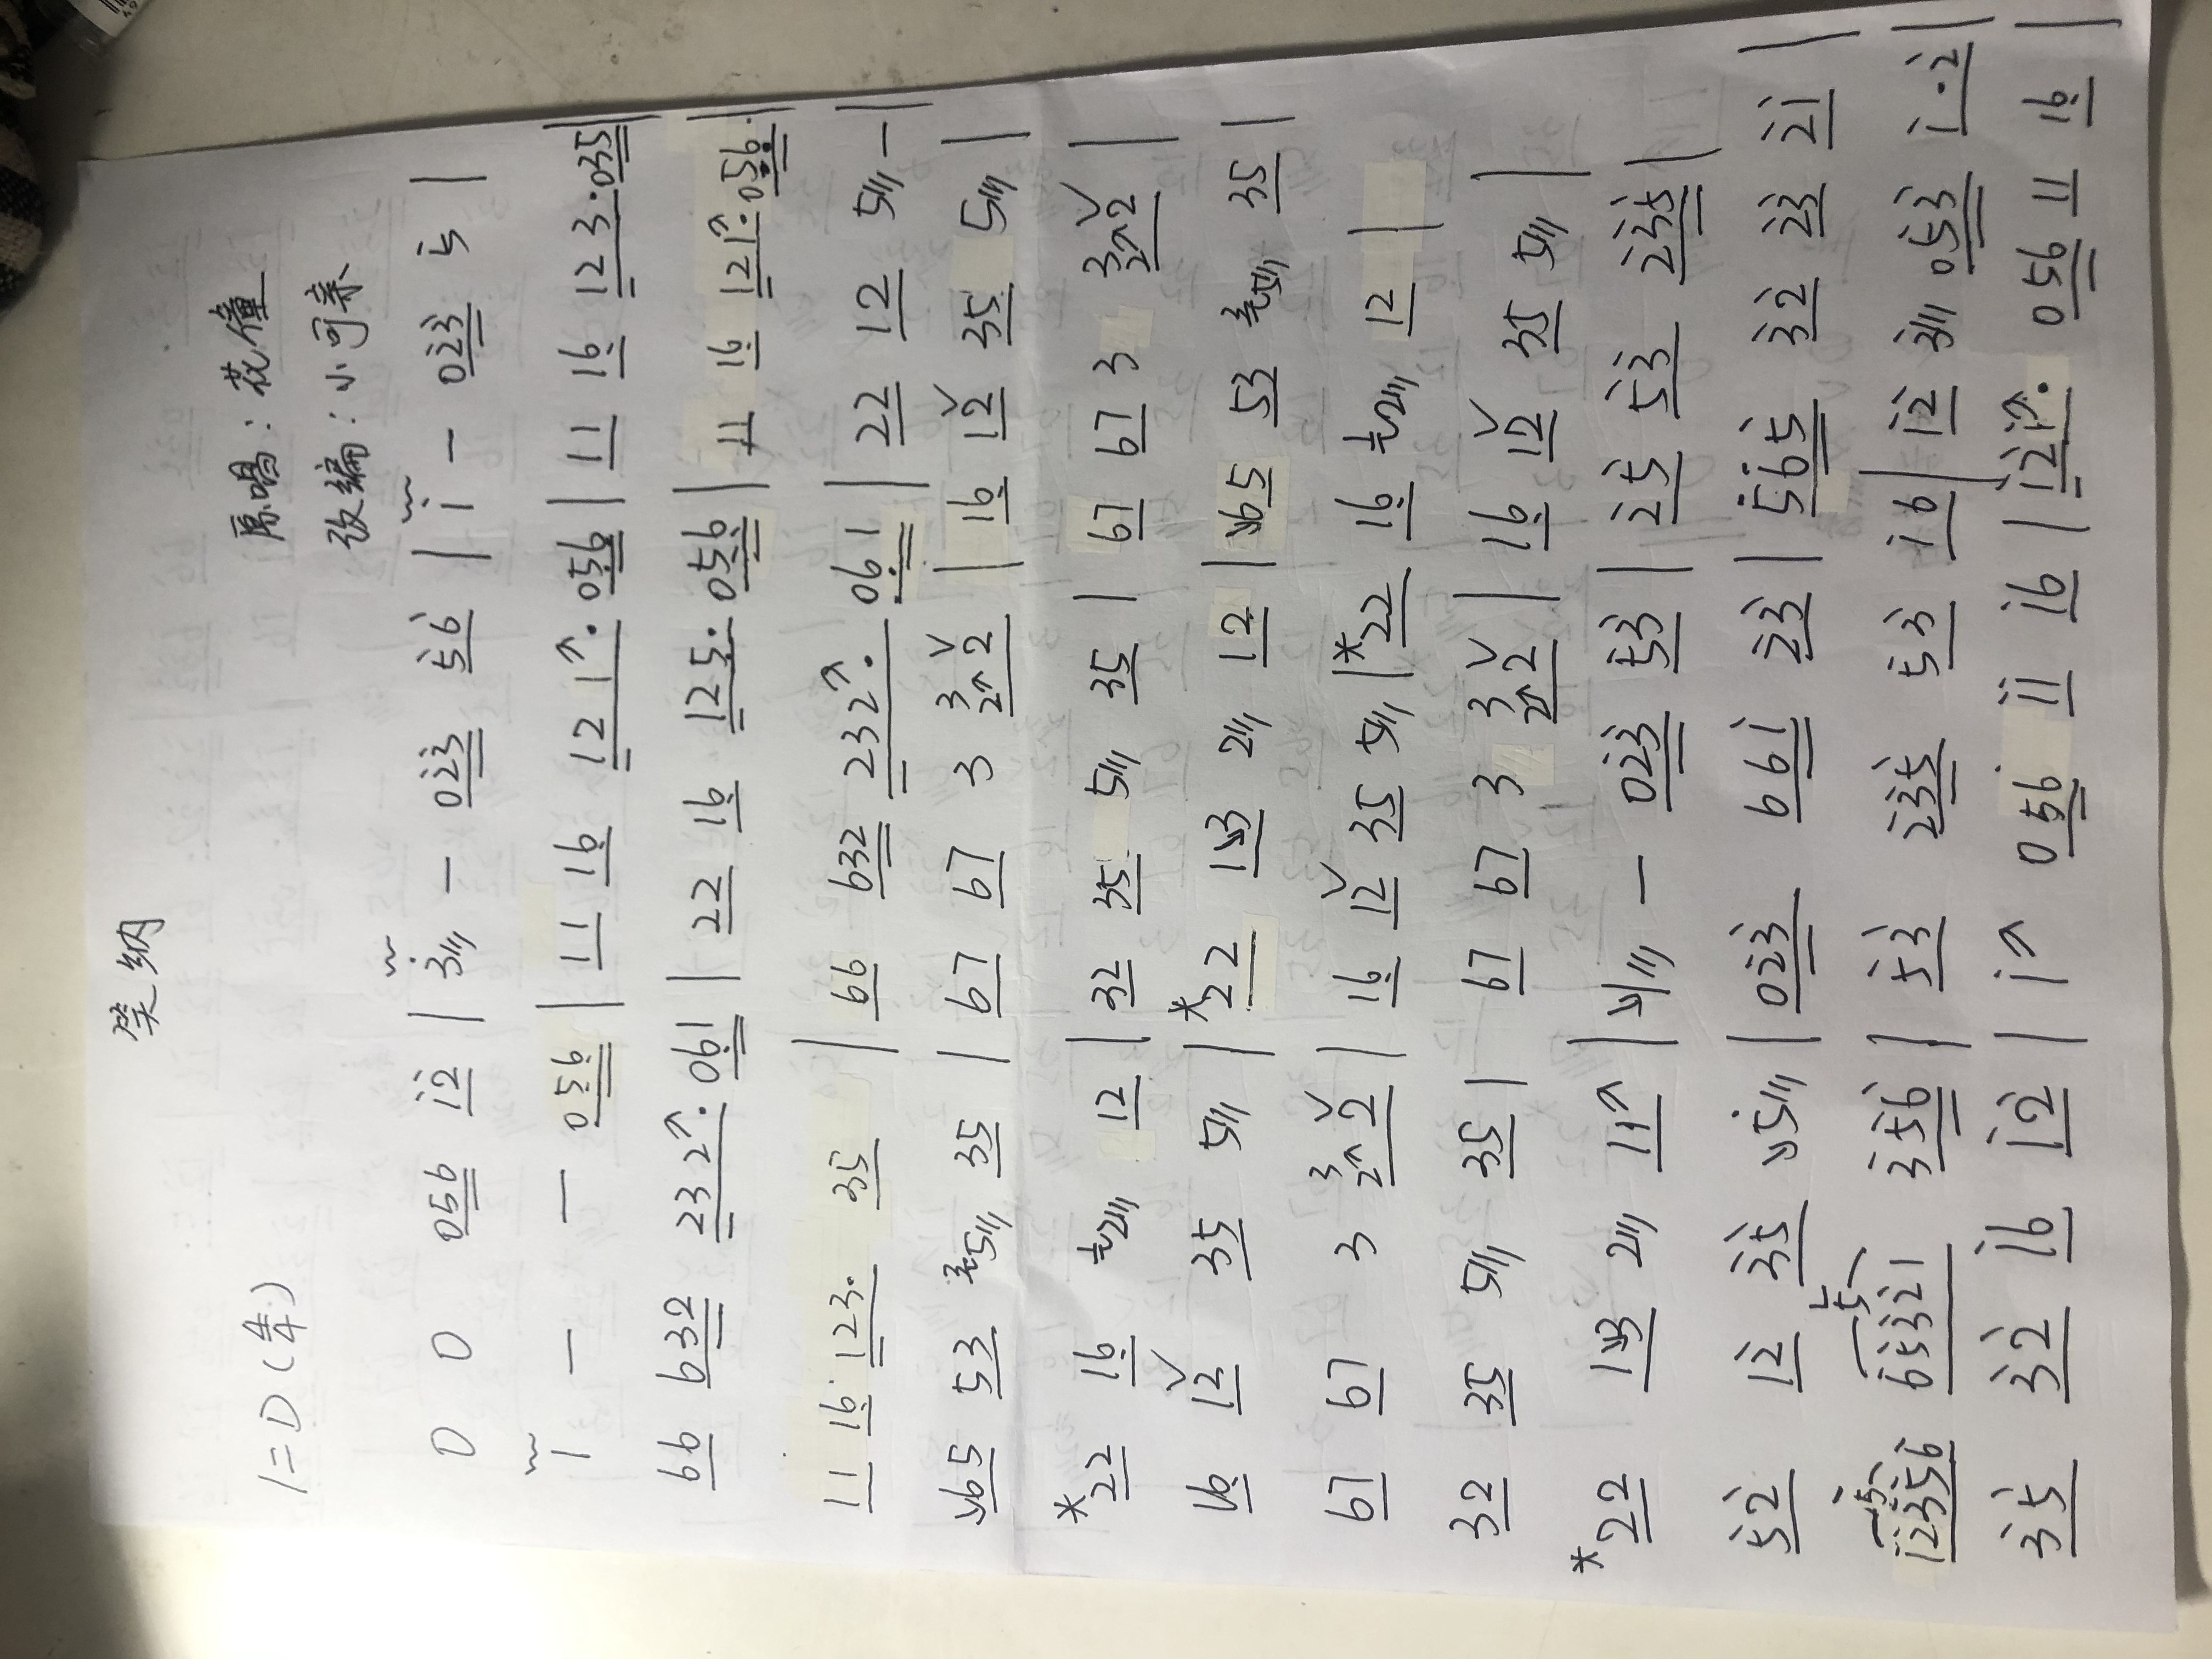 笑纳
1=D (4/4)
原唱：花僮
改编：小可亲
0 0 056 i̇2̇ | 3̇/// — 02̇3̇ 5̇6̇ | i̇ — 02̇3̇ 5̇ |
1 — — 05̣6̣ | 11 16̣ 121↗· 05̣6̣ | 11 16̣ 123· 035 |
66 632 232↗· 06̣1 | 22 16̣ 125̣· 05̣6̣ | 11 16̣ 121↗· 05̣6̣ |
11 16̣ 123· 35 | 66 632 232↗· 06̣1 | 22 12 5/// — |
↘65 53 ³5/// 35 | 67 67 3 ³2↗2 ∨ | 16̣ 12 ∨ 35 5/// |
*22 16̣ ¹2/// 12 | 32 35 5/// 35 | 67 67 3 ³2↗2 ∨ |
16̣ 12 ∨ 35 5/// | *22 1↘3 2/// 12 | ↘65 53 ³5/// 35 |
67 67 3 ³2↗2 ∨ | 16̣ 12 ∨ 35 5/// | *22 16̣ ¹2/// 12 |
32 35 5/// 35 | 67 67 3 ³2↗2 ∨ | 16̣ 12 ∨ 35 5/// |
*22 1↘3 2/// 11↗ | ↘1/// — 02̇3̇ 5̇3̇ | 2̇5̇ 5̇3̇ 2̇3̇5̇ |
5̇2̇ 12̇ 3̇5̇ ↘5̇/// | 02̇3̇ 661̇ 2̇3̇ | 5̇6̇5̇ 3̇2̇ 2̇3̇ 2̇1̇ |
5 5
1̇2̇3̇5̇6̇ 6̇5̇3̇2̇1 3̇5̇6̇ | 5̇3̇ 2̇3̇5̇ 5̇3̇ 1̇6 | 1̇2̇ 3̇/// 05̇3̇ 1̇·2̇ |
3̇5̇ 3̇2̇ 1̇6 1̇2̇ | 1̇↗ 056 1̇1̇ 1̇6 | 1̇2̇1̇↗· 056 11 16̣ |